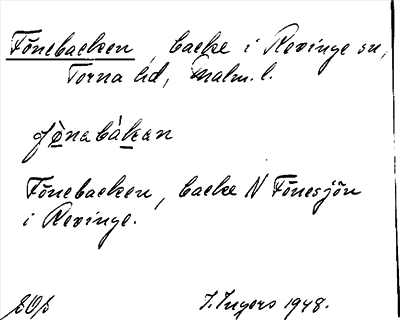 Fönebacken, backe i Revinge sn,
Torna hd, Malm. l.
fö̀nabàkan
Fönebacken, backe N Fönesjön
i Revinge.
I. Ingers 1948.